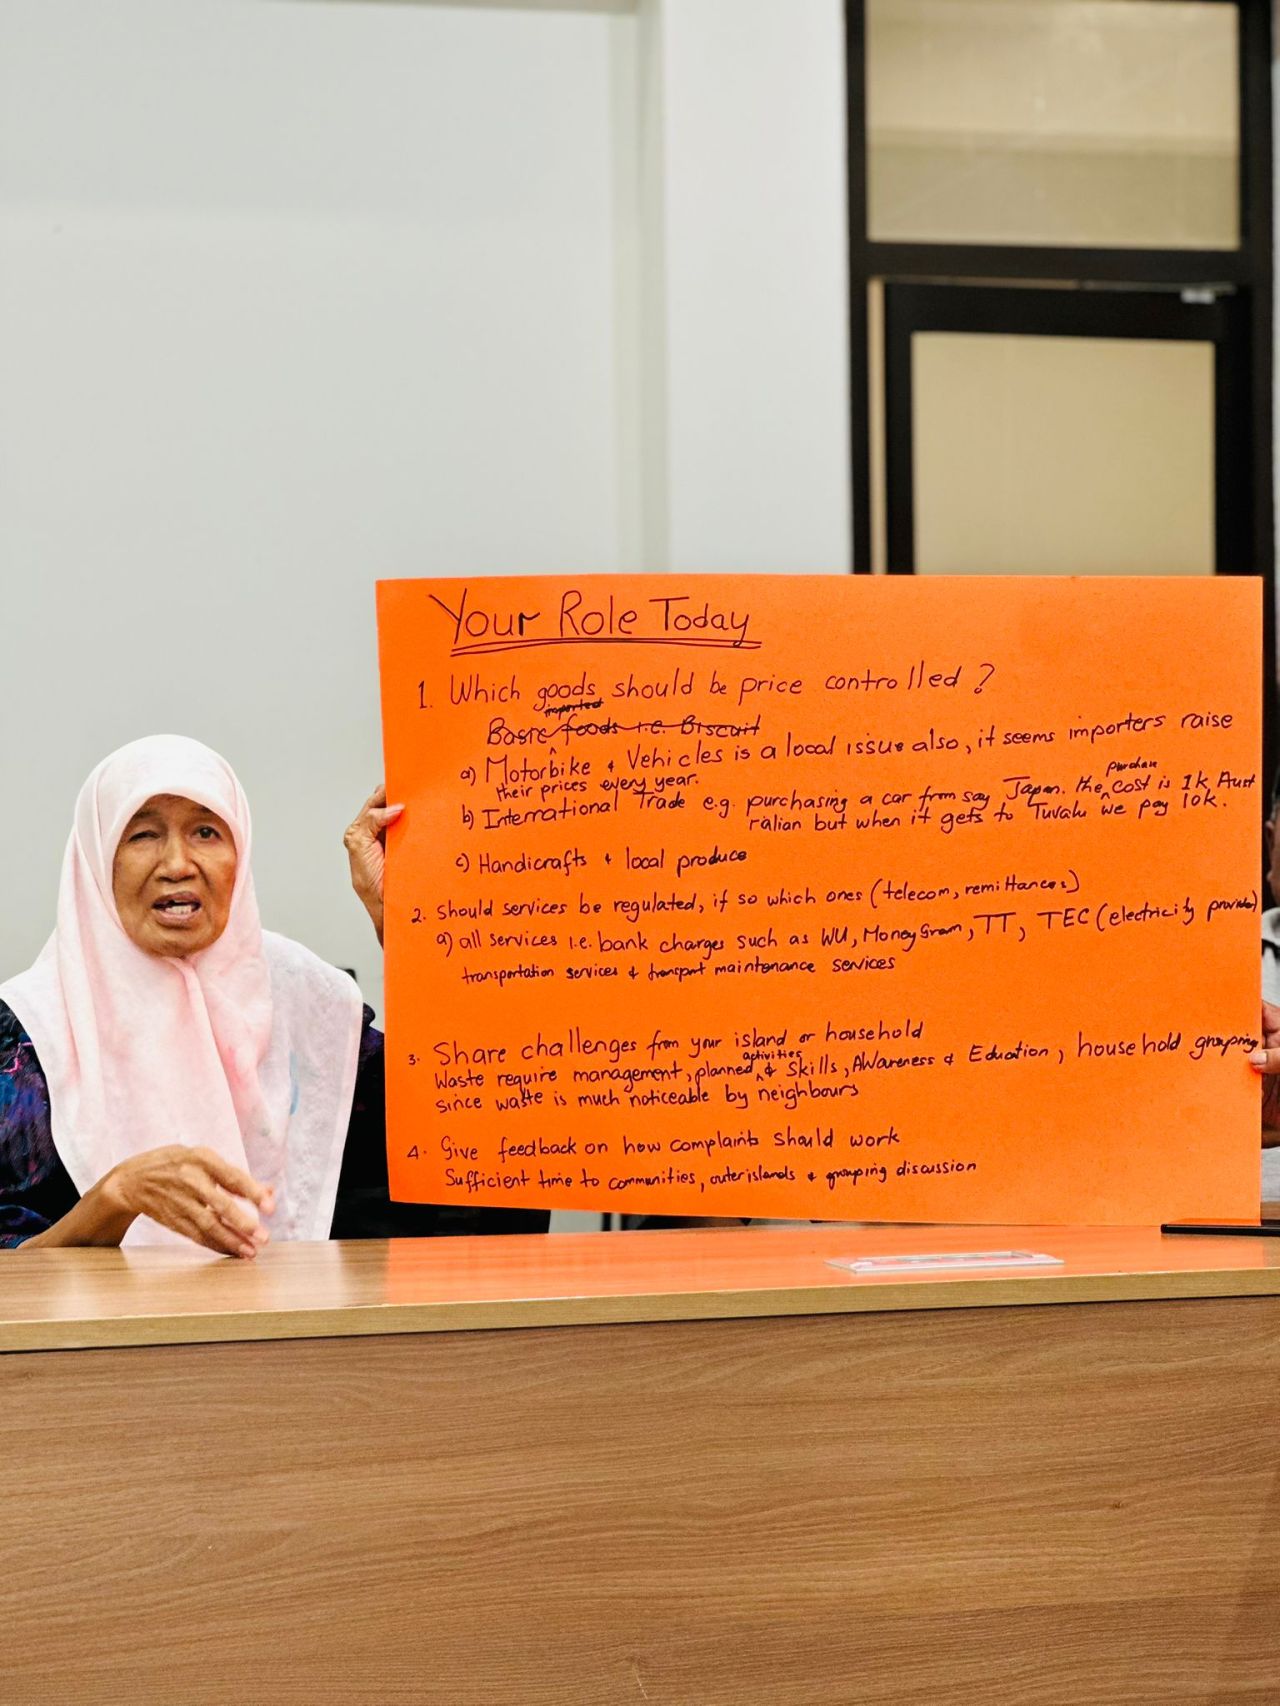 Your Role Today
1. Which goods should be price controlled?
imported
Basic foods i.e. Biscuit
a) Motorbike & Vehicles is a local issue also, it seems importers raise
their prices every year.
purchase
b) International Trade e.g. purchasing a car from say Japan. the cost is 1k Aust
ralian but when it gets to Tuvalu we pay 10k.
c) Handicrafts & local produce
2. Should services be regulated, if so which ones (telecom, remittances)
a) all services i.e. bank charges such as WU, MoneyGram, TT, TEC (electricity provider)
transportation services & transport maintenance services
3. Share challenges from your island or household
activities
Waste require management, planned & Skills, AWareness & Eduation, household grouping
since waste is much noticeable by neighbours
4. Give feedback on how complaints should work
Sufficient time to communities, outer islands & grouping discussion